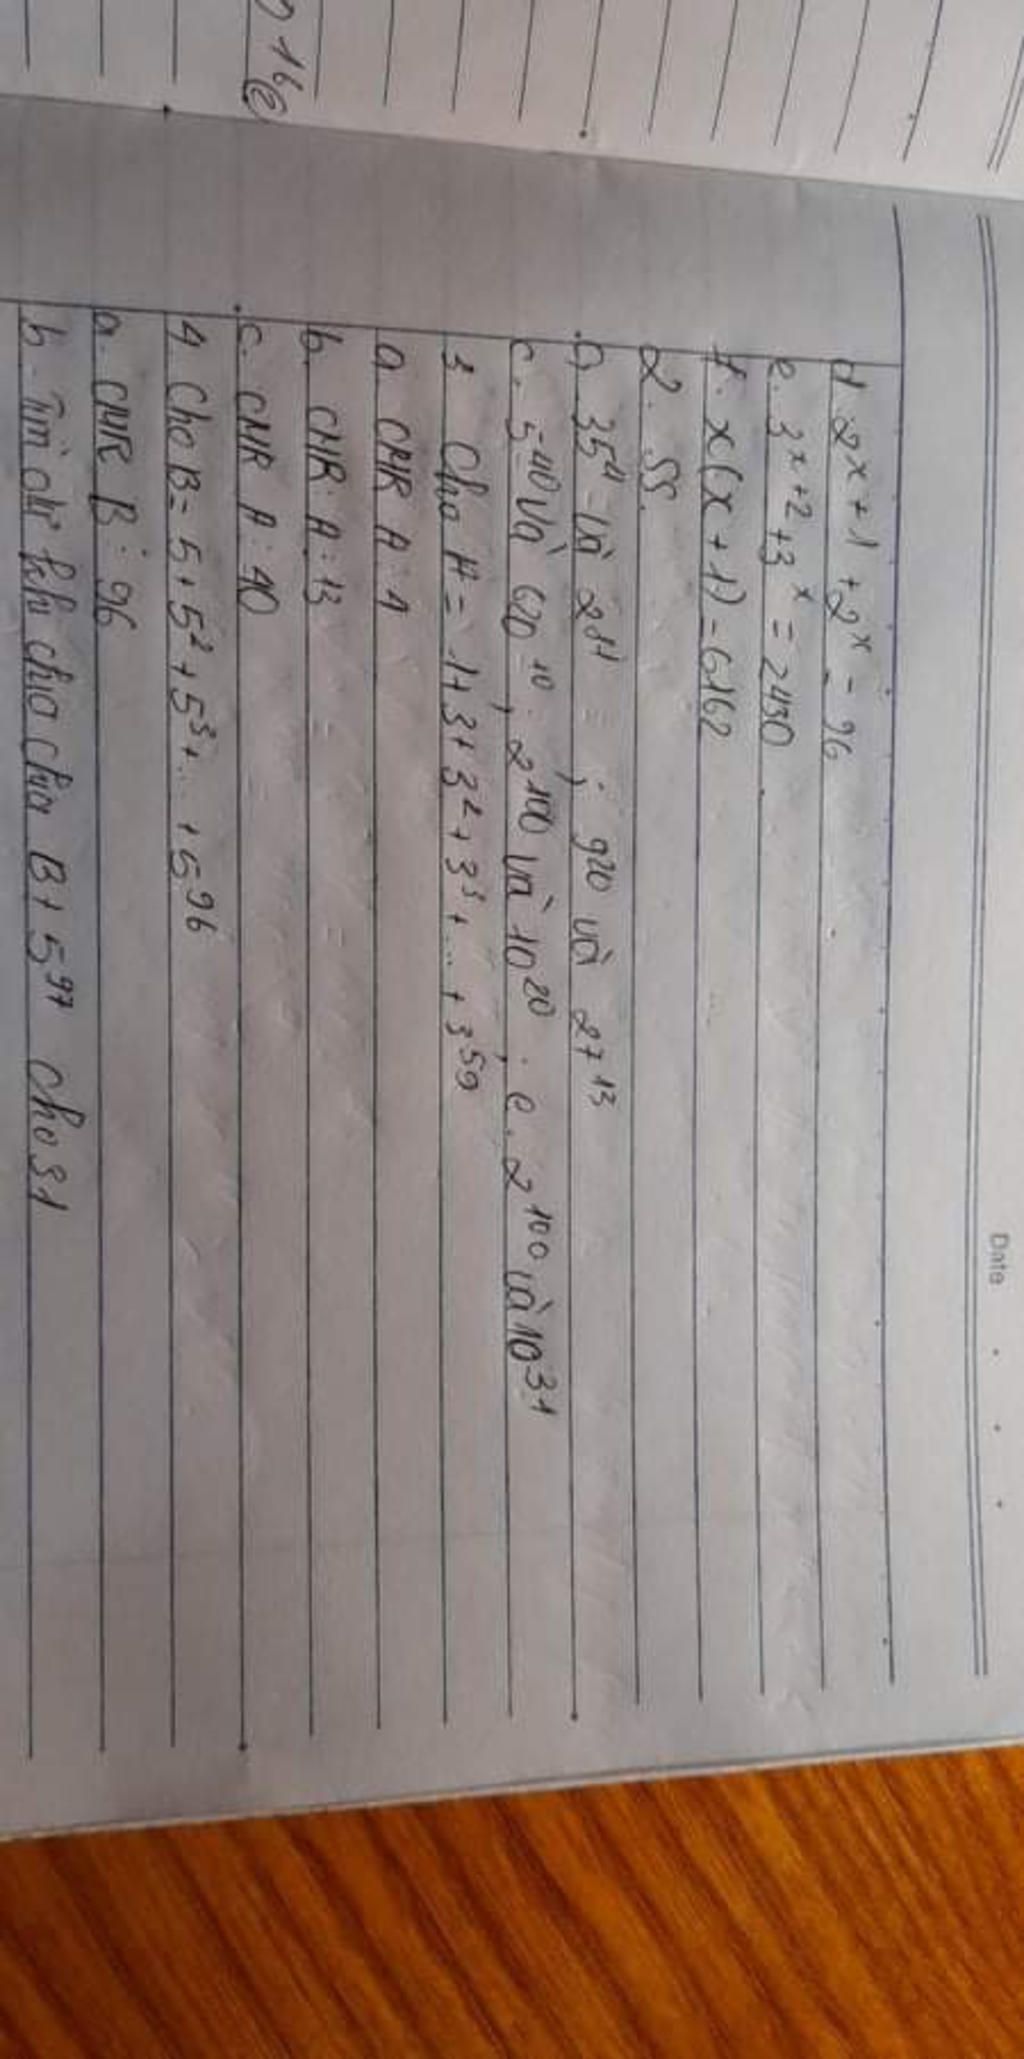 Date
16
d. 2^x+1 + 2^x = 96
e. 3^x+2 + 3^x = 2430
f. x(x+1) = 6162
2. SS.
a. và ; 9^20 và 27^13
c. 5^40 và 620^10 ; 2^100 và 10^20 ; e. 2^100 và 10^31
3 Cho A = 1+3+3^2+3^3+...+3^59
a. CMR A ⋮ 4
b. CMR A ⋮ 13
c. CMR A ⋮ 40
4. Cho B = 5+5^2+5^3+...+5^96
a. CMR B ⋮ 96
b. Tìm dư khi chia của B + 5^97 cho 31